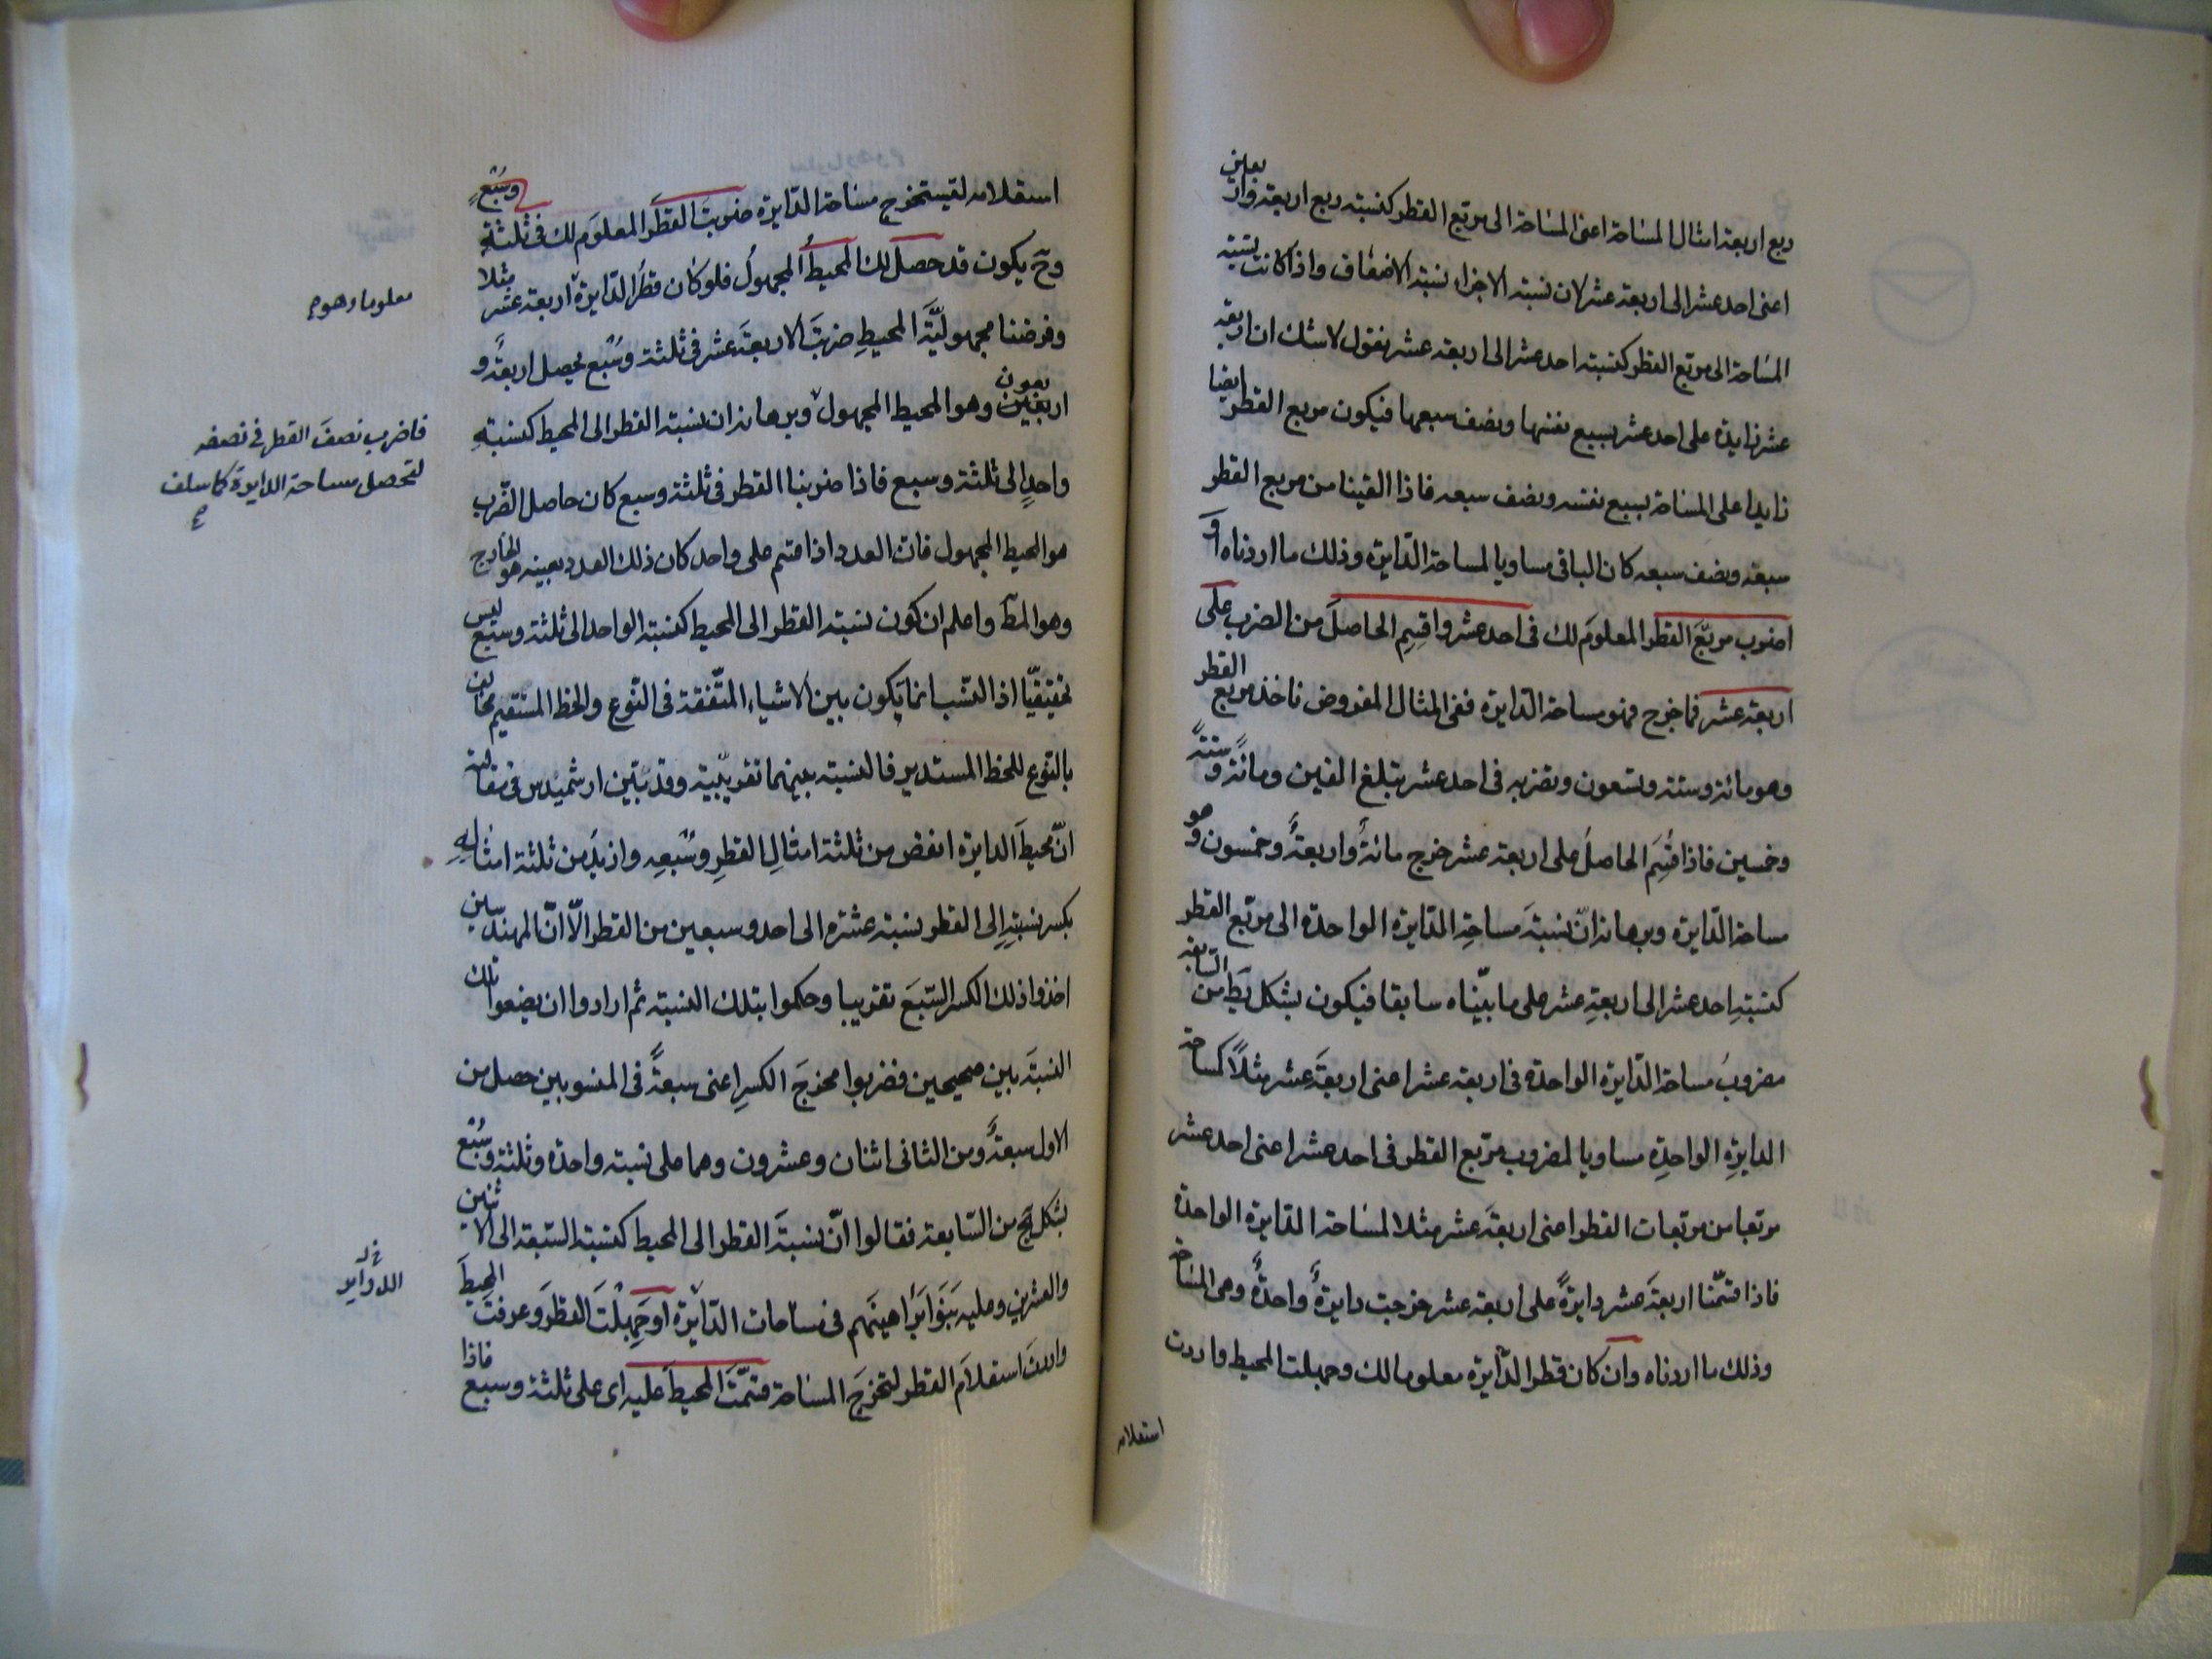 ربع اربعة امثال المساحة اعنى المساحة الى مربع القطر كنسبة ربع اربعة واربعين
اعنى احد عشر الى اربعة عشر لان نسبة الاجزاء نسبة الاضعاف واذا كانت نسبة
المساحة الى مربع القطر كنسبة احد عشر الى اربعة عشر نقول لا شك ان اربعة
عشر زايدة على احد عشر بسبع نفسها ونصف سبعها فيكون مربع القطر ايضا
زايدا على المساحة بسبع نفسه ونصف سبعه فاذا القينا من مربع القطر
سبعه ونصف سبعه كان الباقى مساويا لمساحة الدّايرة وذلك ما اردناه اَو
اضرب مربّعَ القطر المعلومَ لك فى احد عشر واقسِمِ الحاصلَ من الضرب على
اربعة عشر فما خرج فهو مساحة الدّايرة ففى المثال المفروض ناخذ مربع القطر
وهو مائة وستة وتسعون ونضربه فى احد عشر يبلغ الفين ومائةً وستةً
وخمسين فاذا قُسِمَ الحاصلُ على اربعة عشر خرج مائةٌ واربعةٌ وخمسون وهو
مساحة الدّايرة وبرهانه انّ نسبةَ مساحةِ الدّايرة الواحدة الى مربّع القطر
كنسبةِ احد عشر الى اربعةِ عشر على ما بيّناه سابقا فيكون بشكل يَط من السّابعة
مضروبُ مساحة الدّايرة الواحدة فى اربعة عشر اعنى اربعةَ عشر مثلاً كمساحة
الدايرةِ الواحدِة مساويا لمضروب مربّع القطر فى احد عشر اعنى احد عشر
مربّعا من مربّعات القطر اعنى اربعةَ عشر مثلا لمساحة الدّايرة الواحدة
فاذا قسّمنا اربعةَ عشر دايرةً على اربعة عشر خرجت دايرةٌ واحدةٌ وهى المساحة
وذلك ما اردناه وان كان قطر الدّايرة معلوما لك وجهلت المحيط واردت
استعلامه
استعلامه ليستخرج مساحة الدّايرة ضربتَ القطرَ المعلومَ لك فى ثلثةِ وسُبْعٍ
وحَ يكون قد حصل لك المحيطُ المجهولُ فلو كان قطرُ الدّايرة اربعة عشر مثلا
وفرضنا مجهوليّةَ المحيطِ ضربتَ الاربعةَ عشر فى ثلثة وسُبع يحصل اربعةٌ و
اربعين بعون وهو المحيط المجهول وبرهانه ان نسبة القطر الى المحيط كنسبةِ
واحدٍ الى ثلثة وسبع فاذا ضربنا القطر فى ثلثة وسبع كان حاصل الضّرب
هو المحيط المجهول فان العدد اذا قسم على واحد كان ذلك العدد بعينه هو الخارج
وهو المطَ واعلم ان كون نسبة القطر الى المحيط كنسبة الواحد الى ثلثة وسبع ليس
تحقيقيّا اذ النّسب انما يكون بين الاشياء المتّفقة فى النّوع والخط المستقيم مخالف
بالنّوع للخط المستدير فالنسبة بينهما تقريبيّة وقد بيّن ارشميدس فى مقالة
انّ محيطَ الدايرة انقص من ثلثة امثالِ القطرِ وسُبعِه وازيدَ من ثلثة امثالِهِ
بكسر نسبتِه الى القطر نسبة عشرة الى احد وسبعين من القطر الّا انّ المهندسين
اخذوا ذلك الكسر السّبعَ تقريبا وحكموا بتلك النسبة ثم ارادوا ان يضعوا تلك
النسبةَ بين صحيحين فضربوا مخرجَ الكسرِ اعنى سبعةً فى المنسوبين حصل من
الاول سبعةٌ ومن الثانى اثنان وعشرون وهما على نسبة واحدة وثلثة وسُبْع
بشكل يَج من السّابعة فقالوا انّ نسبةَ القطر الى المحيط كنسبة السّبعة الى الاثنين
والعشرين وعليه بَنَوْا براهينَهم فى مساحات الدّايرة او جَهِلْتَ القطرَ وعرفتَ المحيطَ
واردتَ استعلامَ القطر لتخرجَ المساحة قسّمتَ المحيطَ عليه اى على ثلثة وسبع فاذا
معلوما وهو م
فاضرب نصفَ القطر فى نصفه
لتحصل مساحة الدايرة كما سلف
الدواير